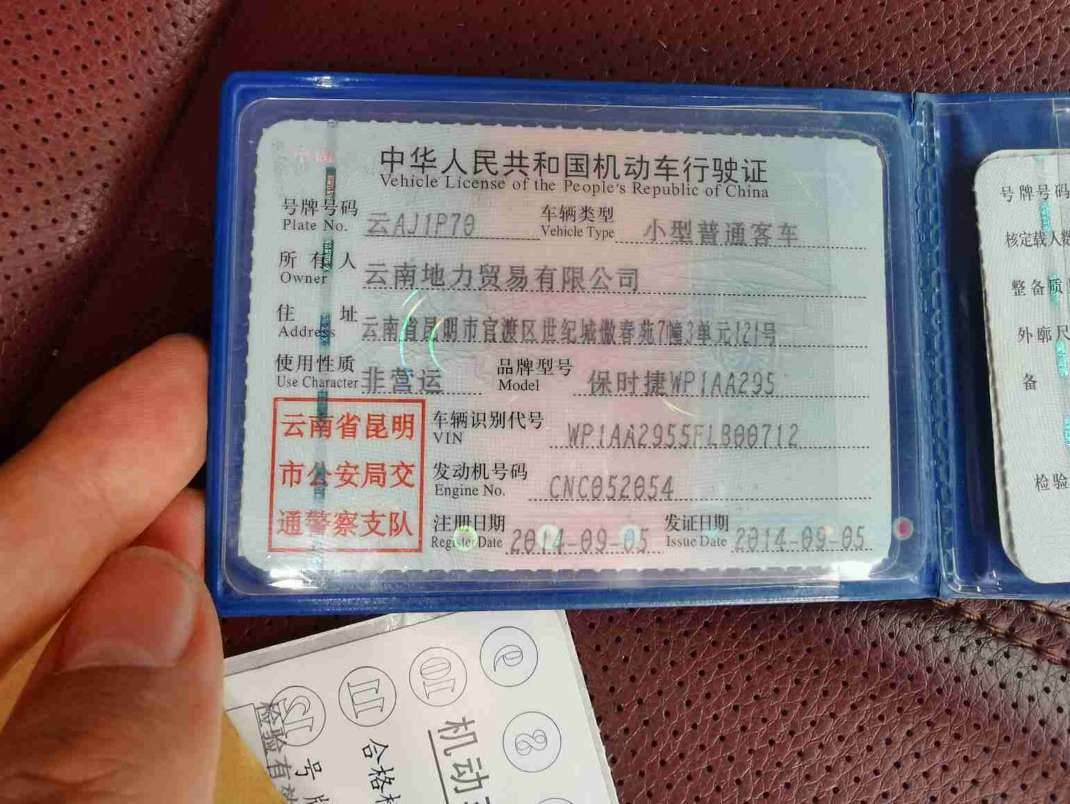 中华人民共和国机动车行驶证
Vehicle License of the People's Republic of China
号牌号码 云AJ1P70 车辆类型 小型普通客车
Plate No. Vehicle Type
所有人 云南地力贸易有限公司
Owner
住址 云南省昆明市官渡区世纪城傲春苑7幢3单元121号
Address
使用性质 非营运 品牌型号 保时捷WP1AA295
Use Character Model
云南省昆明
市公安局交
通警察支队
车辆识别代号 WP1AA2955FLB00712
VIN
发动机号码 CNC052054
Engine No.
注册日期 2014-09-05 发证日期 2014-09-05
Register Date Issue Date
号牌号码
核定载人数
整备质
外廓尺
备
检验
9
8
10
11
机动
合格
号
检验有效